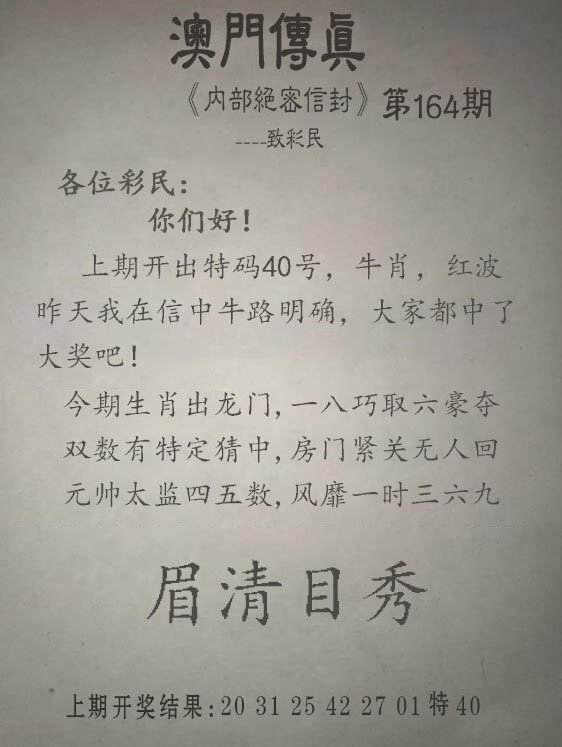 澳門傳眞
《内部絕密信封》第164期
----致彩民
各位彩民：
你们好！
上期开出特码40号，牛肖，红波
昨天我在信中牛路明确，大家都中了
大奖吧！
今期生肖出龙门,一八巧取六豪夺
双数有特定猜中,房门紧关无人回
元帅太监四五数,风靡一时三六九
眉清目秀
上期开奖结果:20 31 25 42 27 01特40